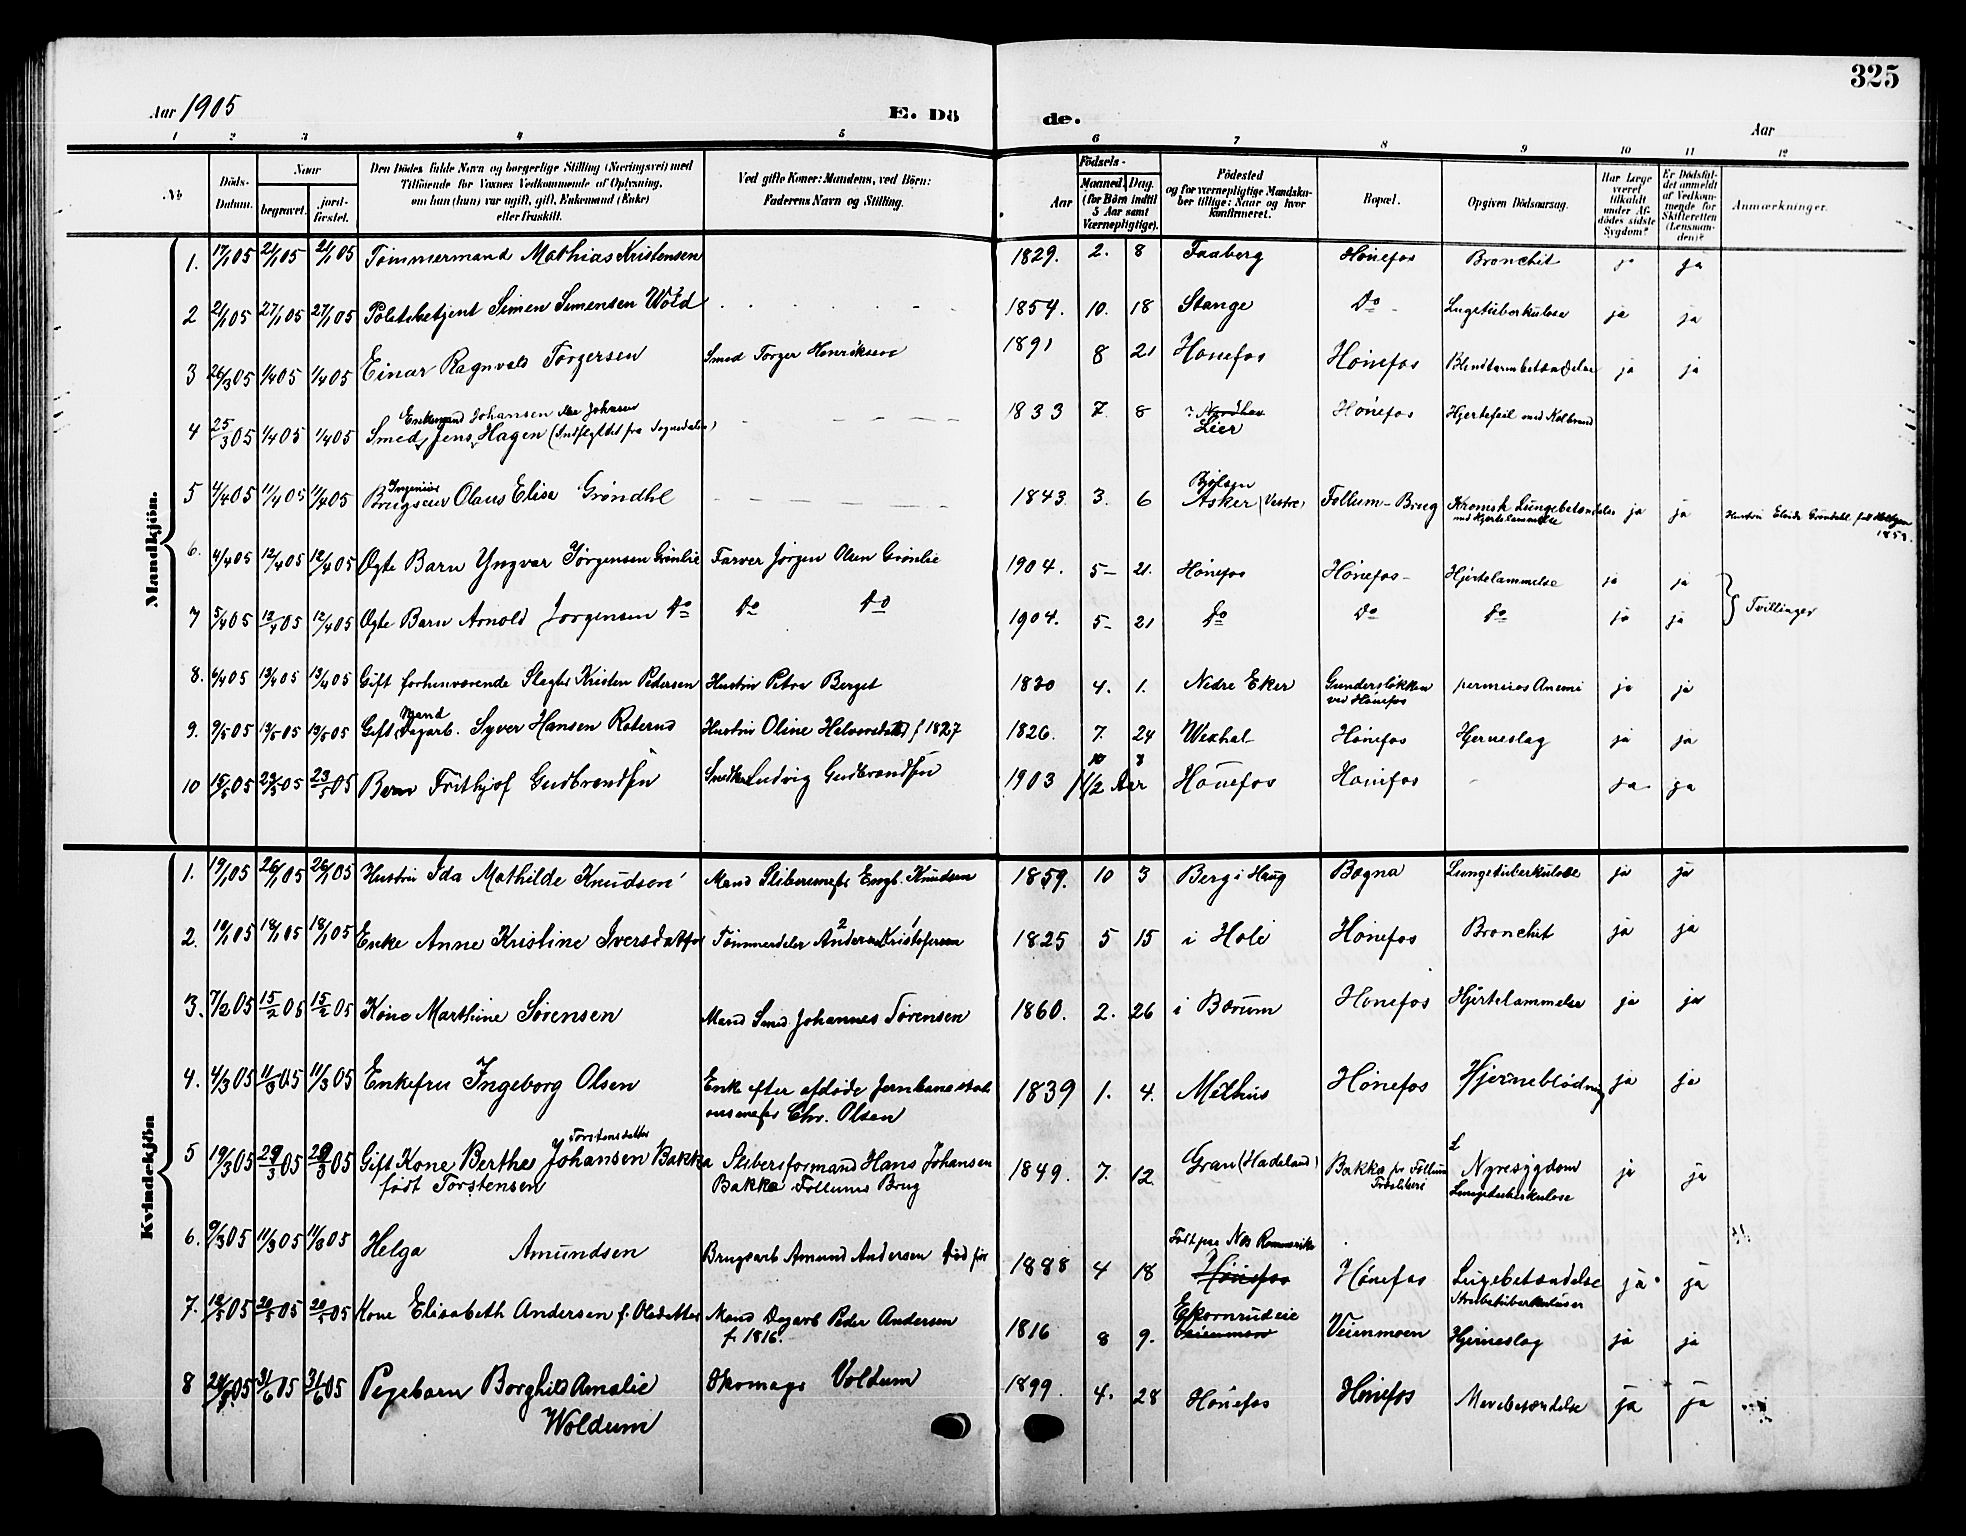 325
Aar 1905
E. Dö de.
Aar
1 2 3 4 5 6 7 8 9 10 11 12
No
Döds-Datum.
Naar
begravet.
jord-fæstet.
Den Dödes fulde Navn og borgerlige Stilling (Næringsvei) med
Tilföiende for Voxnes Vedkommende af Oplysning,
om hun (han) var ugift, gift, Enkemand (Enke)
eller fraskilt.
Ved gifte Koner: Mandens, ved Börn:
Faderens Navn og Stilling.
Födsels-
Aar
Maaned. Dag.
(for Börn indtil
5 Aar samt
Værnepligtige).
Födested
og for værnepligtige Mandska-
ber tillige: Naar og hvor
konfirmeret.
Bopæl.
Opgiven Dödsaarsag.
Har Læge
været
tilkaldt
under Af-
dödes sidste
Sygdom?
Er Dödsfal-
det anmeldt
af Vedkom-
mende for
Skifteretten
(Lensman-
den)?
Anmærkninger.
Mandkjön.
1. 17/1 05 21/1 05 21/1 05 Tømmermand Mathias Kristensen 1829. 2. 8 Faaberg Hønefos Bronchit ja ja
2 21/1 05 27/1 05 27/1 05 Politibetjent Simen Simensen Wold 1854. 10. 18 Stange Do Lugetuberkulose ja ja
3 26/3 05 1/4 05 1/4 05 Einar Ragnvald Torgersen Smed Torger Henriksen 1891 8 21 Hønefos Hønefos Blindtarmbetændelse ja ja
Enkemand Johansen
4 25/3 05 1/4 05 1/4 05 Smed Jens Hagen (Indflyttet fra Sognedalen) 1833 7. 8 Lier Hønefos Hjertefeil med Kolbrand
Ingeniør
5 4/4 05 11/4 05 11/4 05 Brugseier Olaus Elisa Grøndhl 1843. 3. 6 Asker (Vestre) Follum-Brug Kronisk Lungebetændelse med Hjertelammelse ja ja
6. 4/4 05 12/4 05 12/4 05 Ægte Barn Yngvar Jørgensen Grønlie Farver Jørgen Olsen Grønlie 1904. 5- 21. Hønefos Hønefos- Hjertelammelse ja ja
7 5/4 05 12/4 05 12/4 05 Ægte Barn Arnold Jørgensen Do Do Do 1904. 5- 21 Do Do Do ja ja } Tvillinger
8. 6/4 05 13/4 05 13/4 05 Gift forhenværende Slagter Kristen Pedersen Hustru Petra Berget 1830 4. 1. Nedre Eker Gundersløkken ved Hønefos perniciøs Anemi ja ja
Mand
9. 9/5 05 13/5 05 13/5 05 Gift Dagarb. Syver Hansen Roterud Hustru Oline Halvorsdatt f 1827 1826. 7. 24 Hønefos Hjerneslag ja ja
10 15/5 05 23/5 05 23/5 05 Barn Frithjof Gudbrandsen Snedker Ludvig Gudbrandsen 1903 10 8 1 1/2 Aar Hønefos Hønefos ja ja
Kvindekjön
1. 19/1 05 26/1 05 26/1 05 Hustru Ida Mathilde Knudsen Mand Slibermester Engb. Knudsen 1859. 10 3 Berg i Haug Bægna Lungetuberkulose ja ja
2. 10/1 05 18/1 05 18/1 05 Enke Anne Kristine Iversdatter Tømmerdeler Anders Kristofersen 1825 5 15 i Hole Hønefos Bronchit ja ja
3. 7/2 05 15/2 05 15/2 05 Kone Marthine Sørensen Mand Smed Johannes Sørensen 1860. 2. 26 i Bærum Hønefos Hjertelammelse ja ja
4. 4/3 05 11/3 05 11/3 05 Enkefru Ingeborg Olsen Enk efter afdøde Jernbanestationsmester Chr. Olsen 1839 1. 4. Melhus Hønefos Hjerneblødning ja ja
Torstensdatter
5 19/3 05 29/3 05 29/3 05 Gift Kone Berthe Johansen Bakka født Torstensen Sliberiformand Hans Johansen Bakka Follums Brug 1849. 7. 12 Gran (Hadeland) Bakka pr Follum Træsliberi Nyresygdom Lungetuberkulose ja ja
6. 9/3 05 11/3 05 11/3 05 Helga Amundsen Brugsarb Amund Andersen 1888 4 18 Født paa Nes Romerike Hønefos Hønefos Lugebetændelse Strubetuberkuloser ja ja
7. 12/5 05 20/5 05 20/5 05 Kone Elisabeth Andersen f. Olsdatter Mand Dagarb Peder Andersen f. 1816. 1816 8 9. Ekornrudeie Veienmoen Veienmoen Hjerneslag ja ja
8 05 3/6 05 3/6 05 Pigebarn Borghild Amalie Woldum Skomager Voldum 1899 4. 28 Hønefos Hønefos Mavebetændelse ja ja